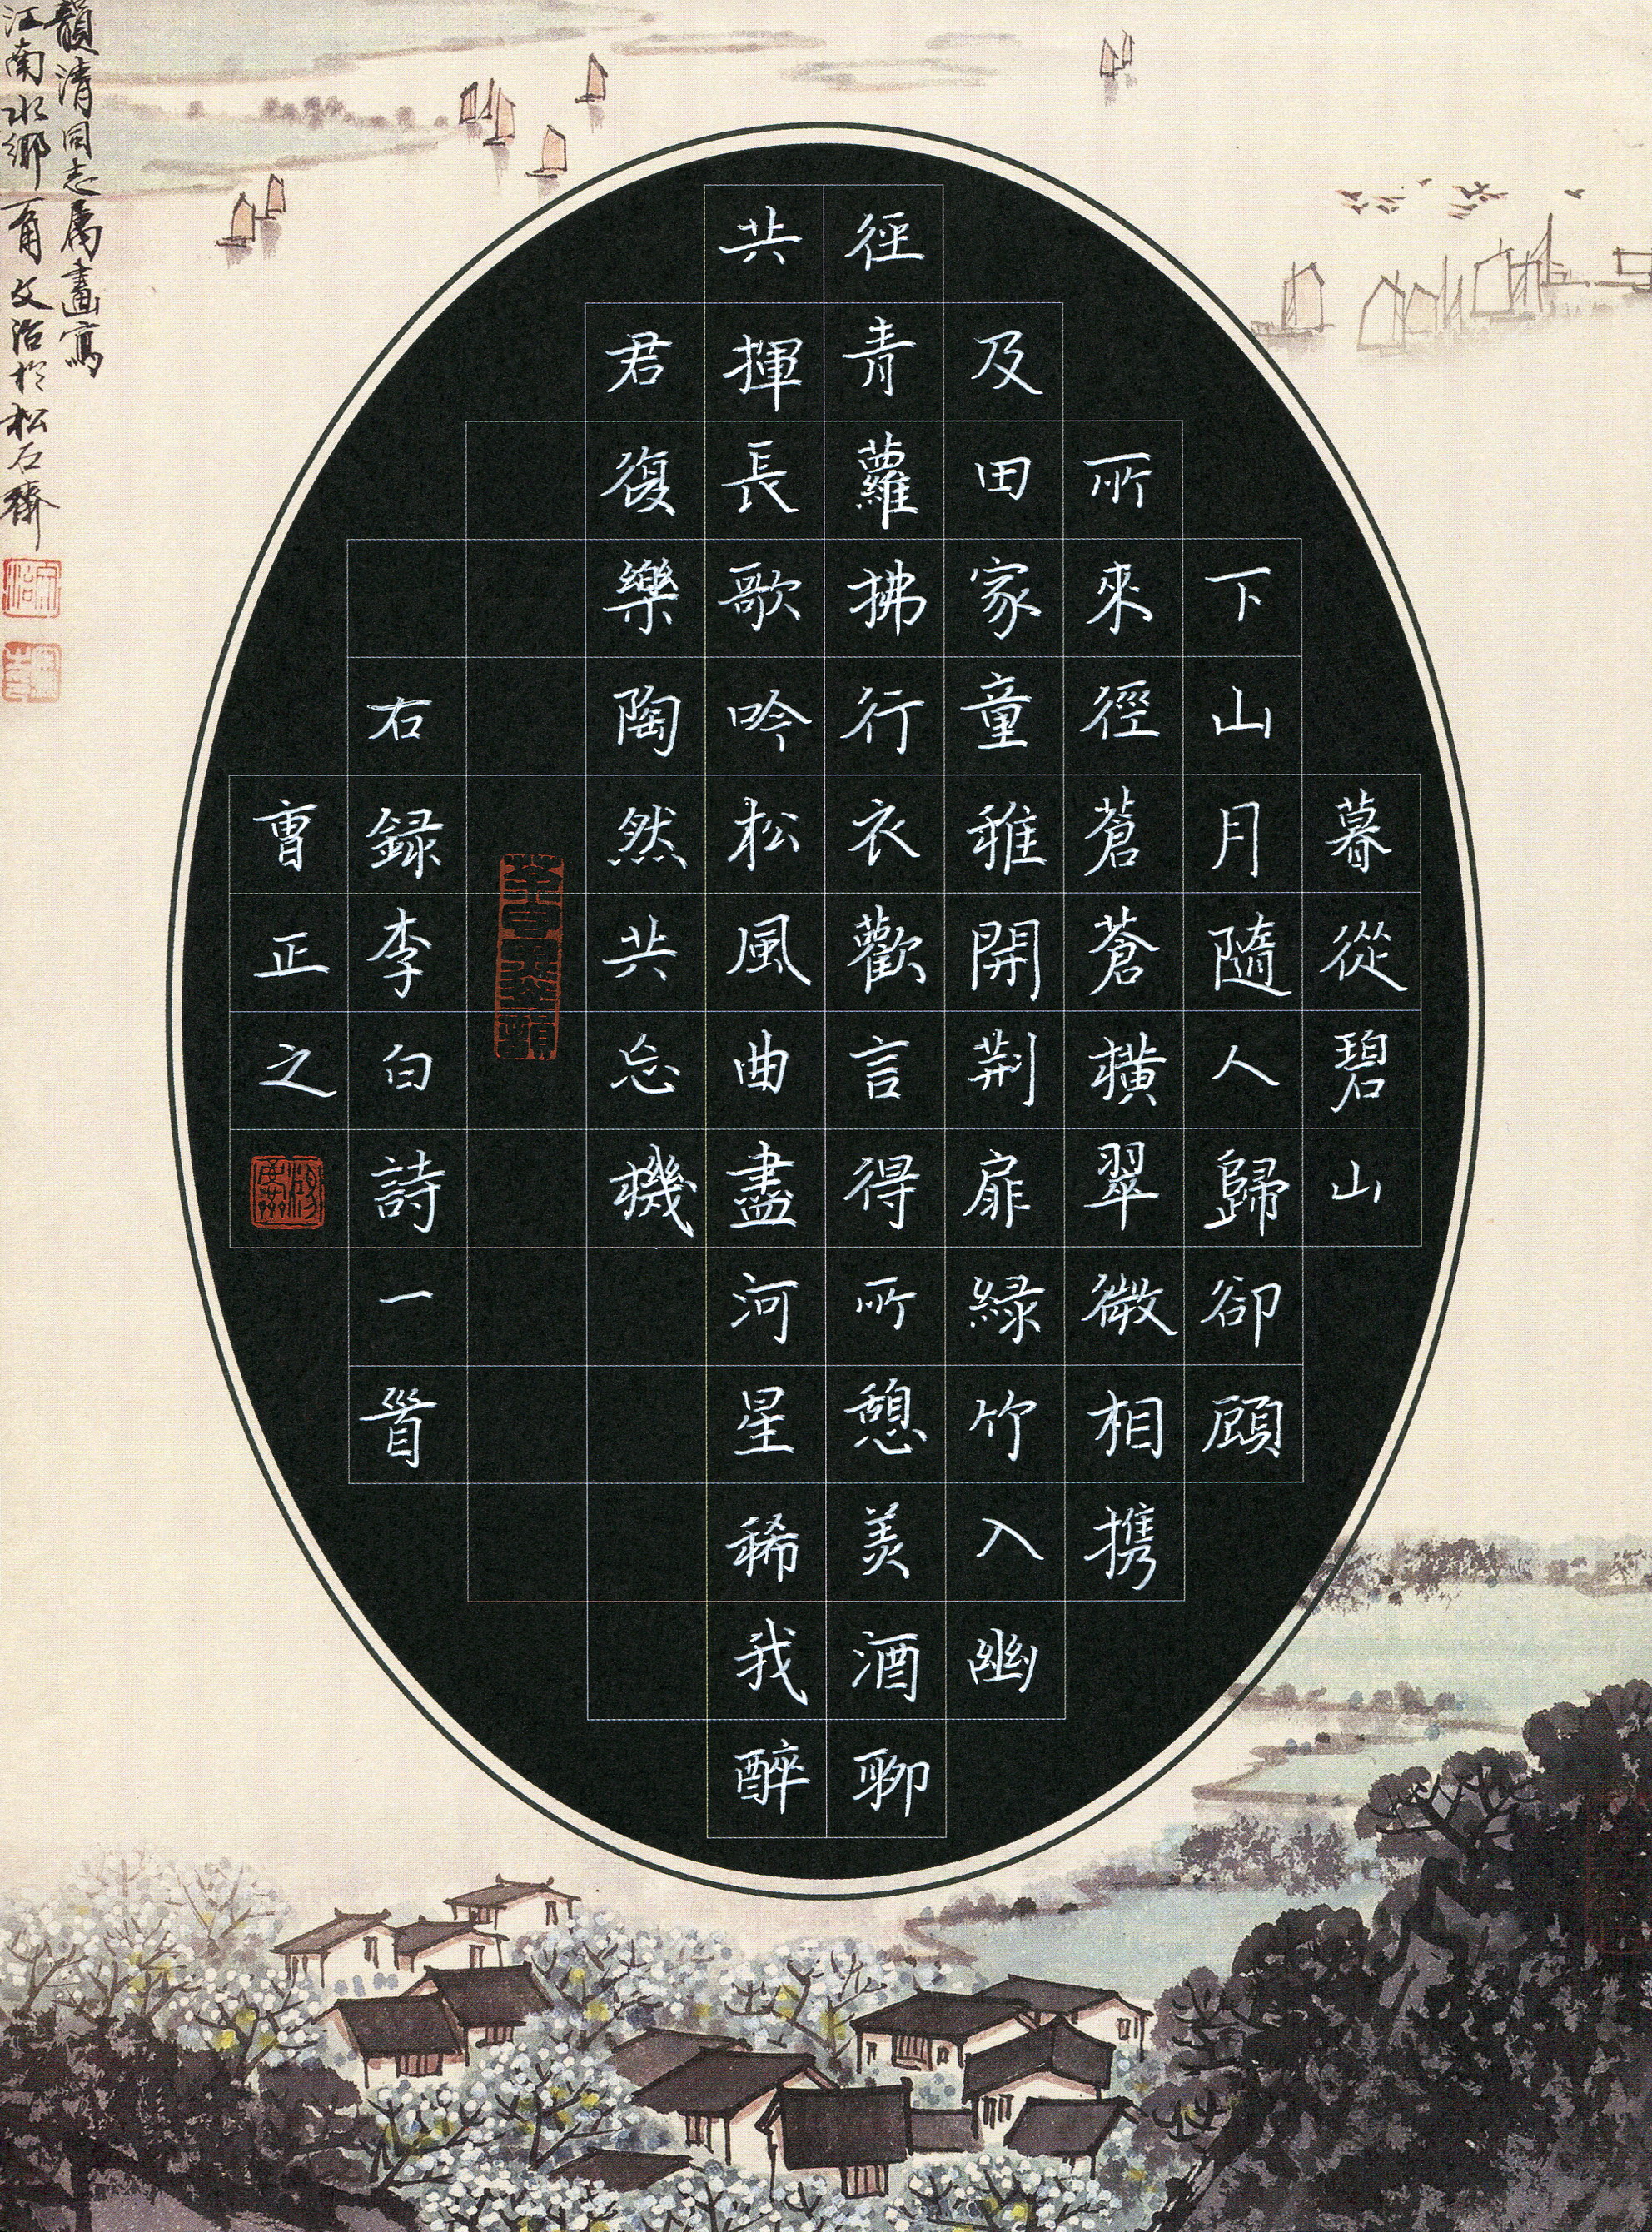 暮從碧山
下山月隨人歸卻顧
所來徑蒼蒼橫翠微相携
及田家童稚開荆扉緑竹入幽
徑青蘿拂行衣歡言得所憩美酒聊
共揮長歌吟松風曲盡河星稀我醉
君復樂陶然共忘機
右録李白詩一首
曹正之
韻清同志属畫寫
江南水鄉一角文治於松石齋